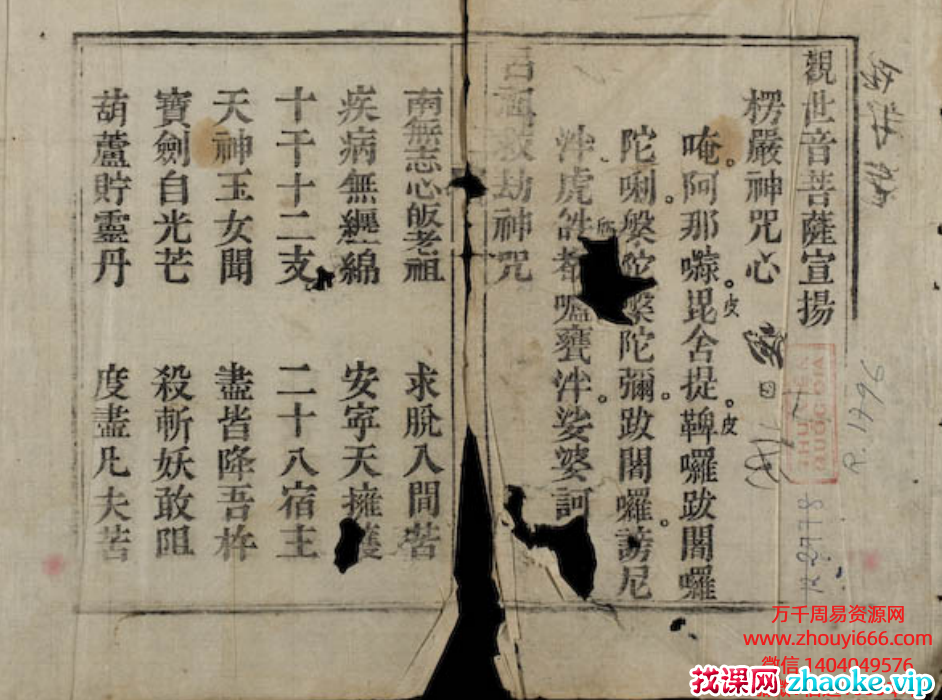 觀世音菩薩宣揚
楞嚴神咒心
唵。阿那㘑。皮毘舍提。皮鞞囉跋闍囉
陀唎。槃陀槃陀彌。跋闍囉。謗尼
泮虎𤙖都嚧甕泮。娑婆訶
救劫神咒
南無志心皈老祖 求脫人間苦
疾病無纏綿 安寧天擁護
十干十二支 二十八宿主
天神玉女聞 盡皆降吾杵
寶劍自光芒 殺斬妖敢阻
葫蘆貯靈丹 度盡凡夫苦
R.1796
8778
万千周易资源网
www.zhouyi666.com
微信 1404049576
找课网 zhaoke.vip